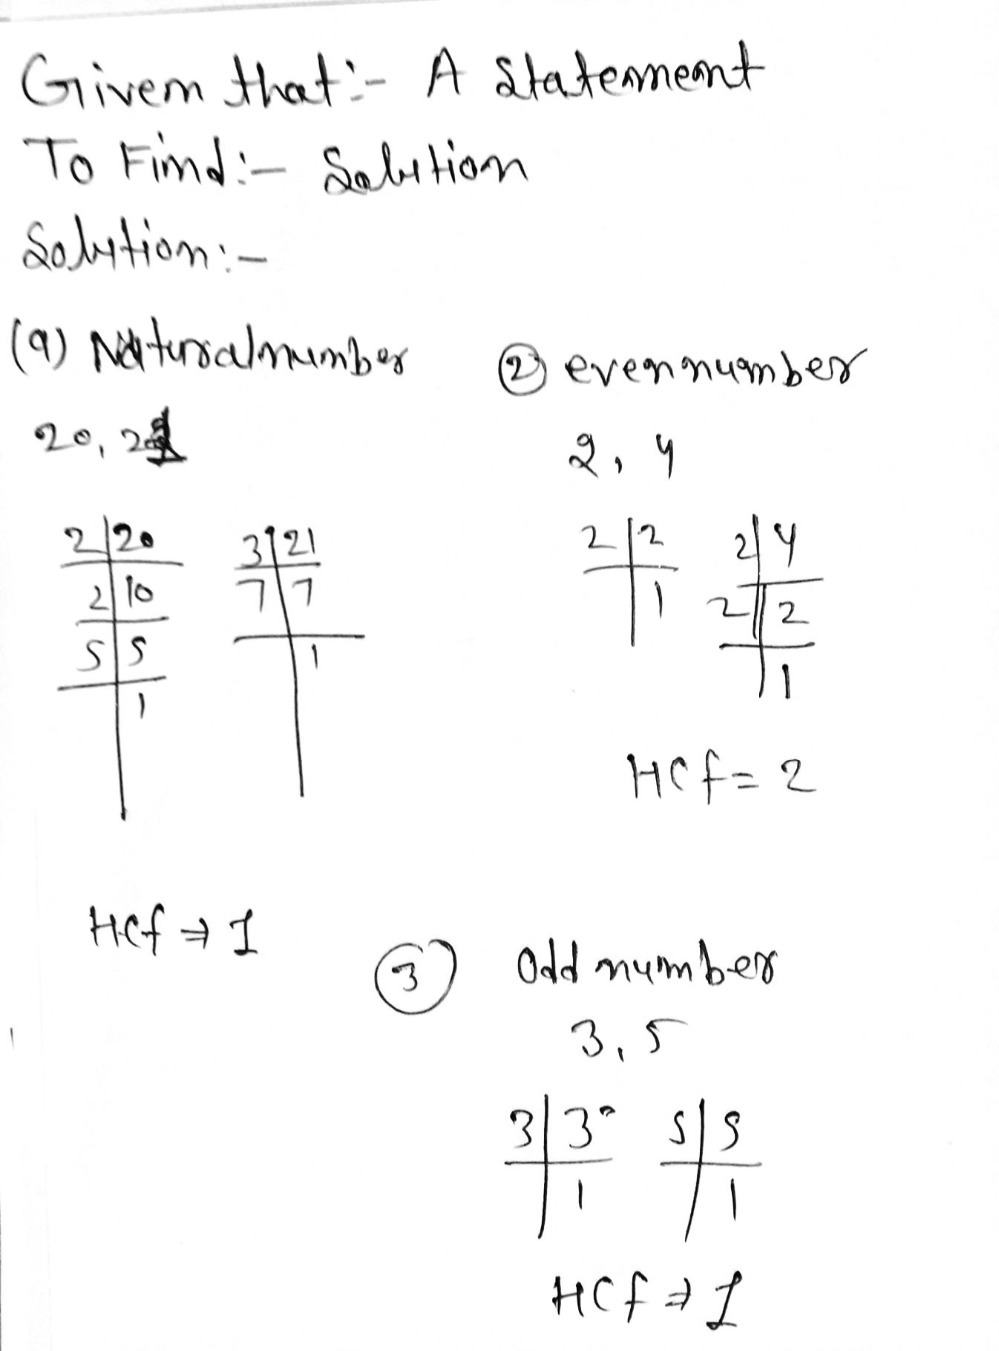 Given that:- A Statement
To Find:- Solution
Solution:-
(a) Natural number
20, 21
2 | 20
2 | 10
5 | 5
1
3 | 21
7 | 7
1
HCf ⇒ 1
② even number
2, 4
2 | 2
1
2 | 4
2 | 2
1
HCf = 2
③ Odd number
3, 5
3 | 3
1
5 | 5
1
HCf ⇒ 1